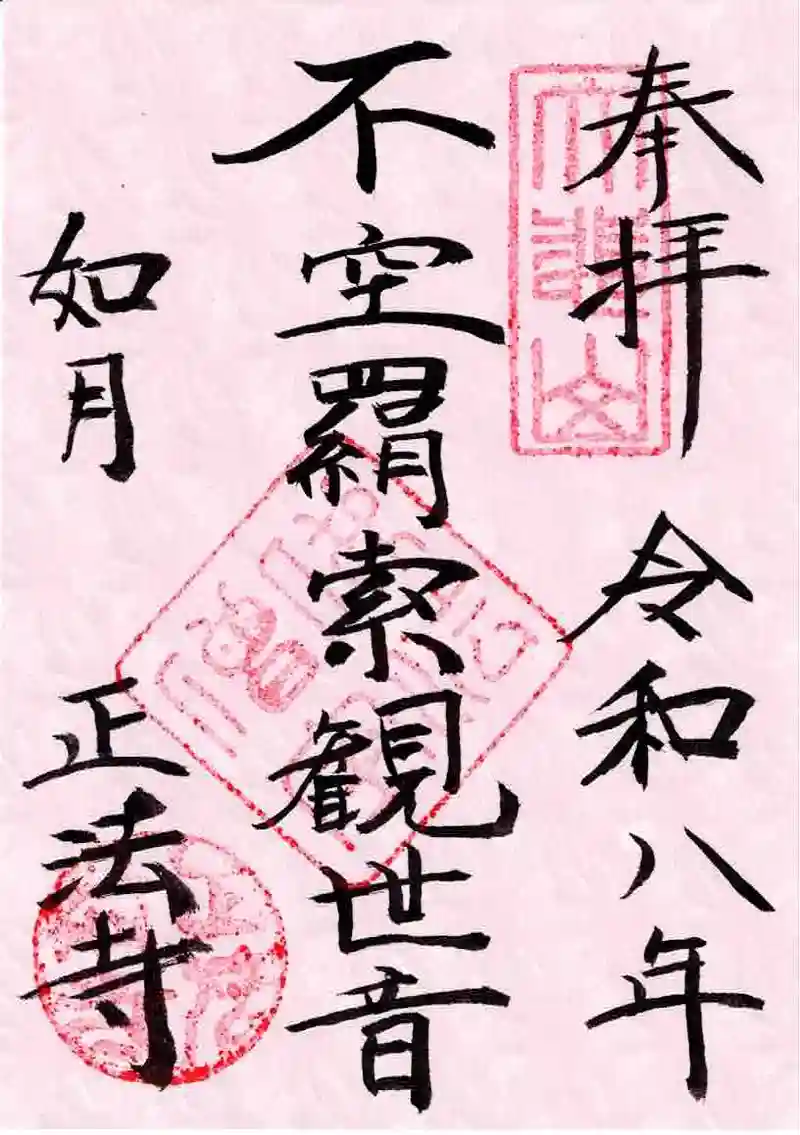 奉拝
令和八年
不空羂索観世音
如月
正法寺